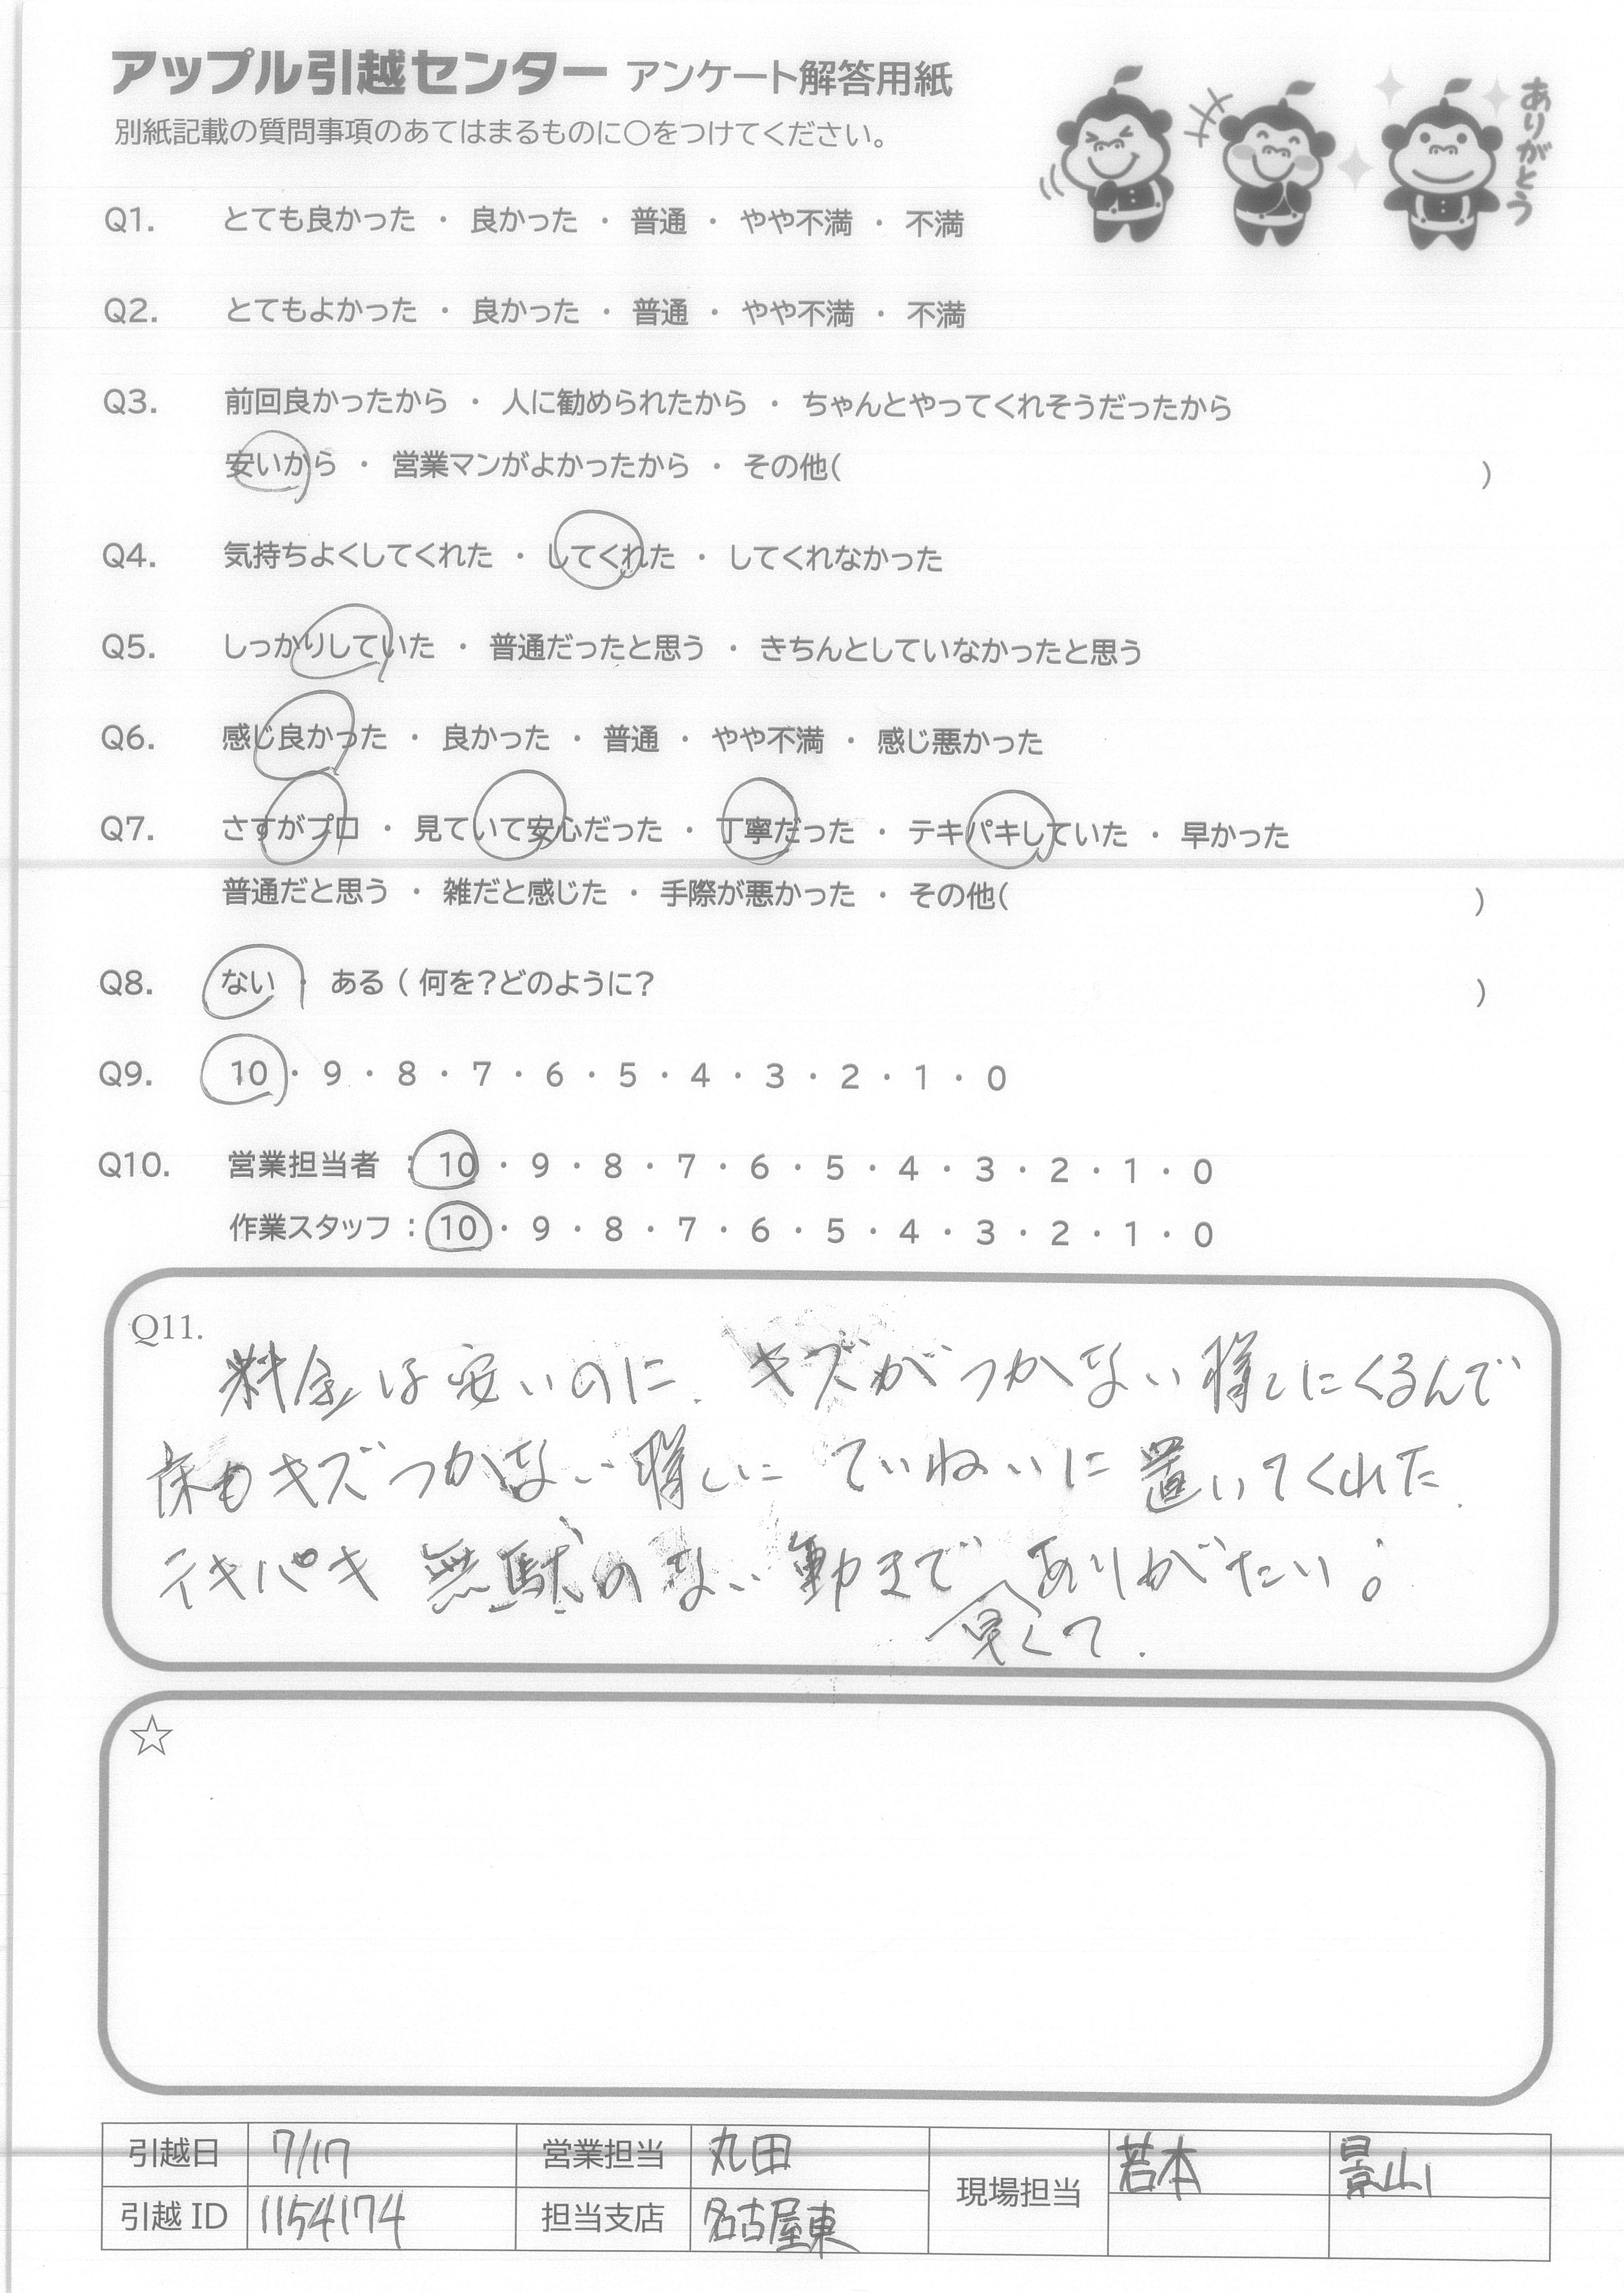 アップル引越センター アンケート解答用紙
別紙記載の質問事項のあてはまるものに○をつけてください。
ありがとう
Q1. とても良かった ・ 良かった ・ 普通 ・ やや不満 ・ 不満
Q2. とてもよかった ・ 良かった ・ 普通 ・ やや不満 ・ 不満
Q3. 前回良かったから ・ 人に勧められたから ・ ちゃんとやってくれそうだったから
安いから ・ 営業マンがよかったから ・ その他( )
Q4. 気持ちよくしてくれた ・ してくれた ・ してくれなかった
Q5. しっかりしていた ・ 普通だったと思う ・ きちんとしていなかったと思う
Q6. 感じ良かった ・ 良かった ・ 普通 ・ やや不満 ・ 感じ悪かった
Q7. さすがプロ ・ 見ていて安心だった ・ 丁寧だった ・ テキパキしていた ・ 早かった
普通だと思う ・ 雑だと感じた ・ 手際が悪かった ・ その他( )
Q8. ない ・ ある ( 何を?どのように? )
Q9. 10 ・ 9 ・ 8 ・ 7 ・ 6 ・ 5 ・ 4 ・ 3 ・ 2 ・ 1 ・ 0
Q10. 営業担当者 : 10 ・ 9 ・ 8 ・ 7 ・ 6 ・ 5 ・ 4 ・ 3 ・ 2 ・ 1 ・ 0
作業スタッフ : 10 ・ 9 ・ 8 ・ 7 ・ 6 ・ 5 ・ 4 ・ 3 ・ 2 ・ 1 ・ 0
Q11.
料金は安いのに、キズがつかない様にくるんで
床もキズつかない様に ていねいに 置いてくれた。
テキパキ 無駄のない動きで ありがたい。
早くて.
☆
引越日 7/17 営業担当 丸田 現場担当 若本 景山
引越 ID 1154174 担当支店 名古屋東